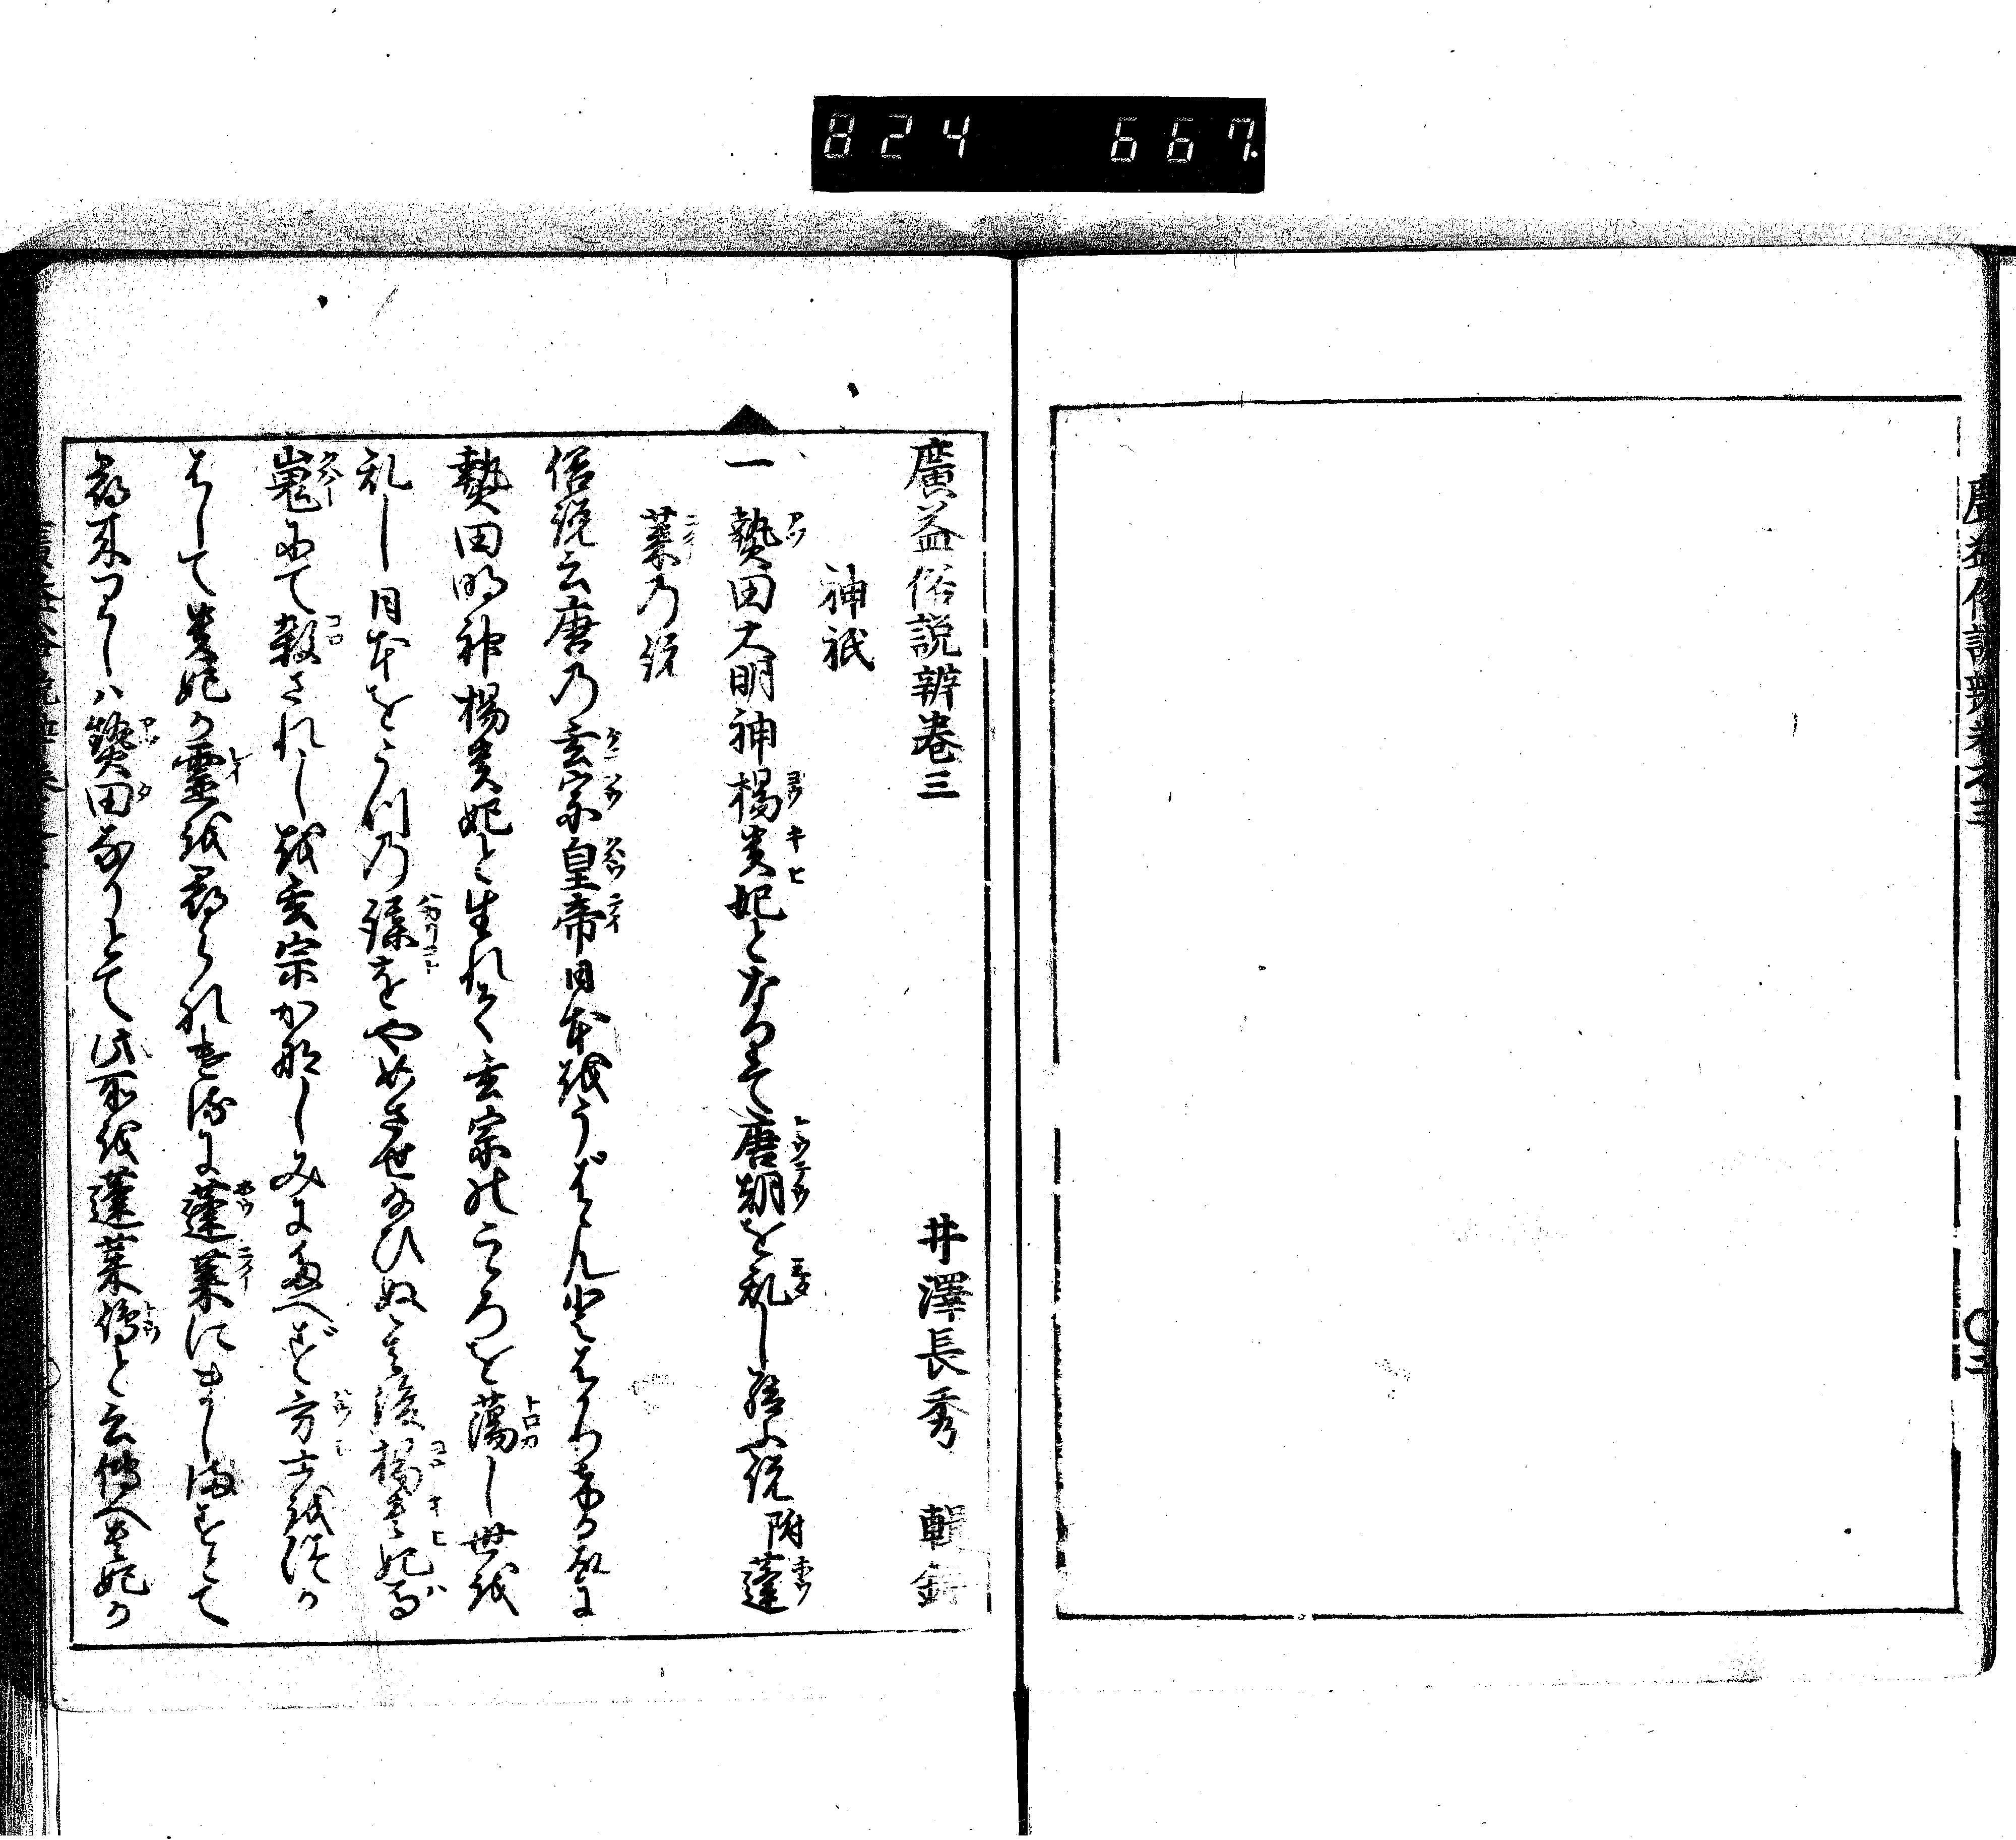 824 667
廣益俗説辨巻三
井澤長秀 輯
神祇
一 熱田大明神楊貴妃となりて唐朝を乱し給ふ説 附蓬
莱乃説
俗説云唐乃玄宗皇帝日本越うばんとはかりける故に
熱田明神楊貴妃と生れて玄宗のこころを蕩し世越
乱し日本をうつ乃謀をやめさせ給ひぬ其後楊貴妃馬
嵬にて殺されし越玄宗かなしみにたへず方士越つか
はして貴妃か霊越尋られける に蓬莱にましますとて
尋来りしハ熱田なりとて此所越蓬莱嶋と云傳へ貴妃か